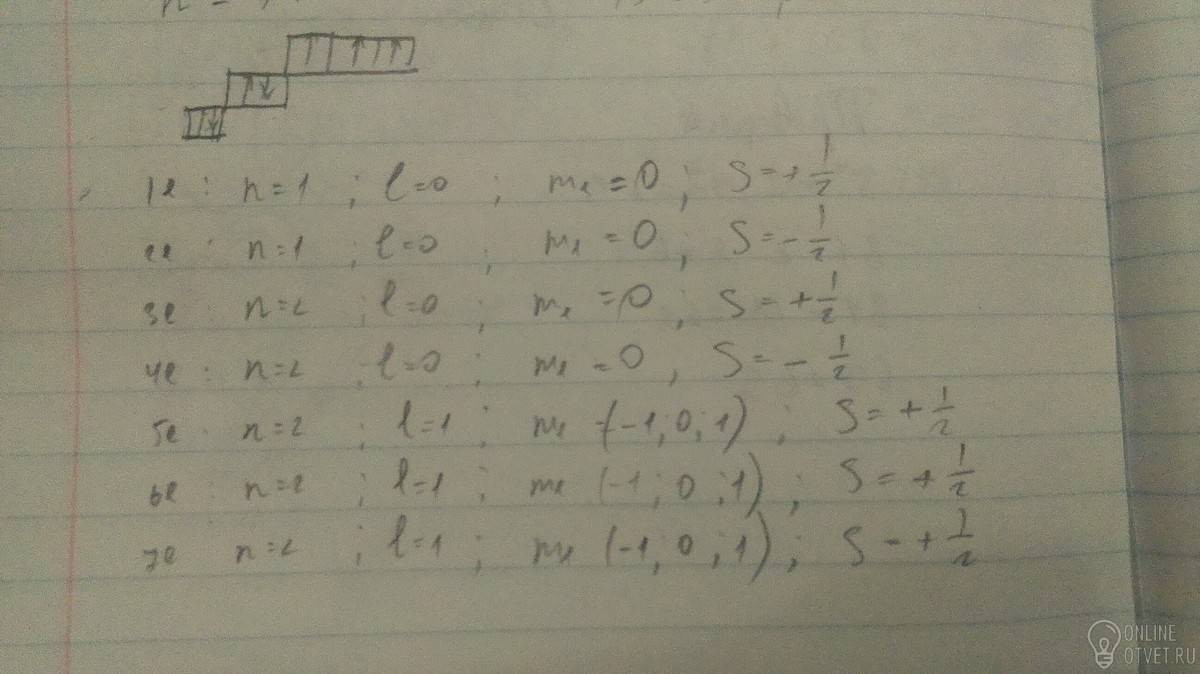 1e : n=1 ; l=0 ; mₗ =0 ; S=+ 1/2
2e : n=1 ; l=0 ; mₗ =0 ; S=- 1/2
3e : n=2 ; l=0 ; mₗ =0 ; S=+ 1/2
4e : n=2 ; l=0 ; mₗ =0 , S=- 1/2
5e : n=2 ; l=1 ; mₗ (-1;0;1) ; S=+ 1/2
6e : n=2 ; l=1 ; mₗ (-1;0;1) ; S=+ 1/2
7e n=2 ; l=1 ; mₗ (-1;0;1) ; S=+ 1/2
ONLINE
OTVET.RU